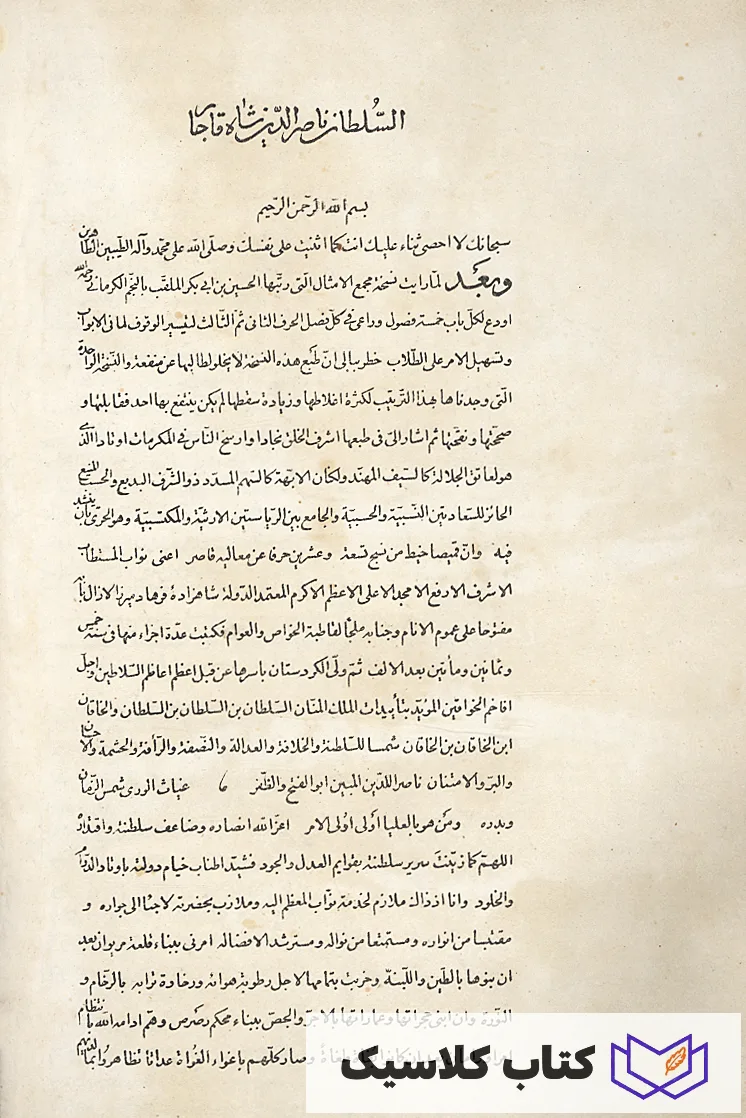 السّلطان ناصرالدّین شاه قاجار
بسم الله الرّحمن الرّحیم
سبحانك لا احصی ثناء علیك انت کما اثنیت علی نفسك وصلّی الله علی محمّد وآله الطّیبین الطّاهرین
وبعد لمّا رایت نسخة مجمع الامثال الّتی رتّبها الحسین بن ابی بکر الملقّب بالنّجم الکرمانی رحمه الله
اودع لکلّ باب خمسة فصول وراعی فی کلّ فصل الحرف الثانی ثمّ الثّالث لتیسیر الوقوف لما فی الابواب
وتسهیل الامر علی الطّلاب خطر ببالی انّ طبع هذه النسخة لا یخلو لطالبها عن منفعة والنّسخة الواحدة
الّتی وجدناها بهذا التّرتیب لکثرة اغلاطها وزیادة سقطها لم یکن ینتفع بها احد فقابلتها و
صحّحتها ونقّحتها ثم اشار الیّ فی طبعها اشرف الخلق نجادا وارسخ النّاس فی المکرمات اوتادا الّذی
هو لعاتق الجلالة کالسّیف المهنّد ولکنان الابهّة کالسّهم المسدّد ذوالشّرف البدیع والحسب المنیع
الحائز للسّعادتین النّسبیّة والحسبیّة والجامع بین الرّیاستین الارثیّة والمکتسبیّة وهو الحریّ بان ینشد
فیه وانّ قمیصا خیط من نسج تسعة وعشرین حرفا عن معالیه قاصر اعنی نواب المستطاب
الاشرف الارفع الامجد الاعلی الاعظم الاکرم المعتمد الدّولة شاهزاده فرهاد میرزا لازال بابه
مفتوحا علی عموم الانام وجنابه ملجأ لقاطبة الخواص والعوام فکتبت عدّة اجزاء منها فی سنة خمس
وثمانین ومأتین بعد الالف ثمّ ولّی الکردستان باسرها عن قبل اعظم اعاظم السّلاطین واجلّ
افاخم الخواقین المؤیّد بتأییدات الملك المنّان السّلطان بن السّلطان بن السّلطان والخاقان
ابن الخاقان بن الخاقان شمسا للسّلطنة والخلافة والعدالة والنّصفة والرّأفة والحشمة والاحسان
والبرّ والامتنان ناصر اللدّین المبین ابوالفتح والظّفر غیاث الوری شمس الزّمان
وبدره ومن هو بالعلیا أولی اولی الامر اعزّ الله انصاره وضاعف سلطنته واقتداره
اللهمّ کما زیّنت سریر سلطنته بقوایم العدل والجود فشیّد اطناب خیام دولته باوتاد الدّوام
والخلود وانا اذ ذاك ملازم لخدمة نوّاب المعظم الیه وملازب بحضرته لاجئا الی جواره و
مقتبسا من انواره ومستمتعا من نواله ومسترشد الافضاله امرنی ببناء قلعة مریوان بعد
ان بنوها بالطّین واللّبنة وخربت بتمامها لاجل رطوبة هوائه ورخاوة ترابه بالرّخام و
النّورة وان ابنی حجراتها وعماراتها بالاجر والجصّ ببناء محکم رصرص وهم ادامه الله بانتظام
وصار کلّهم باغواء الغواة عداتا تظاهروا
کتاب کلاسیک